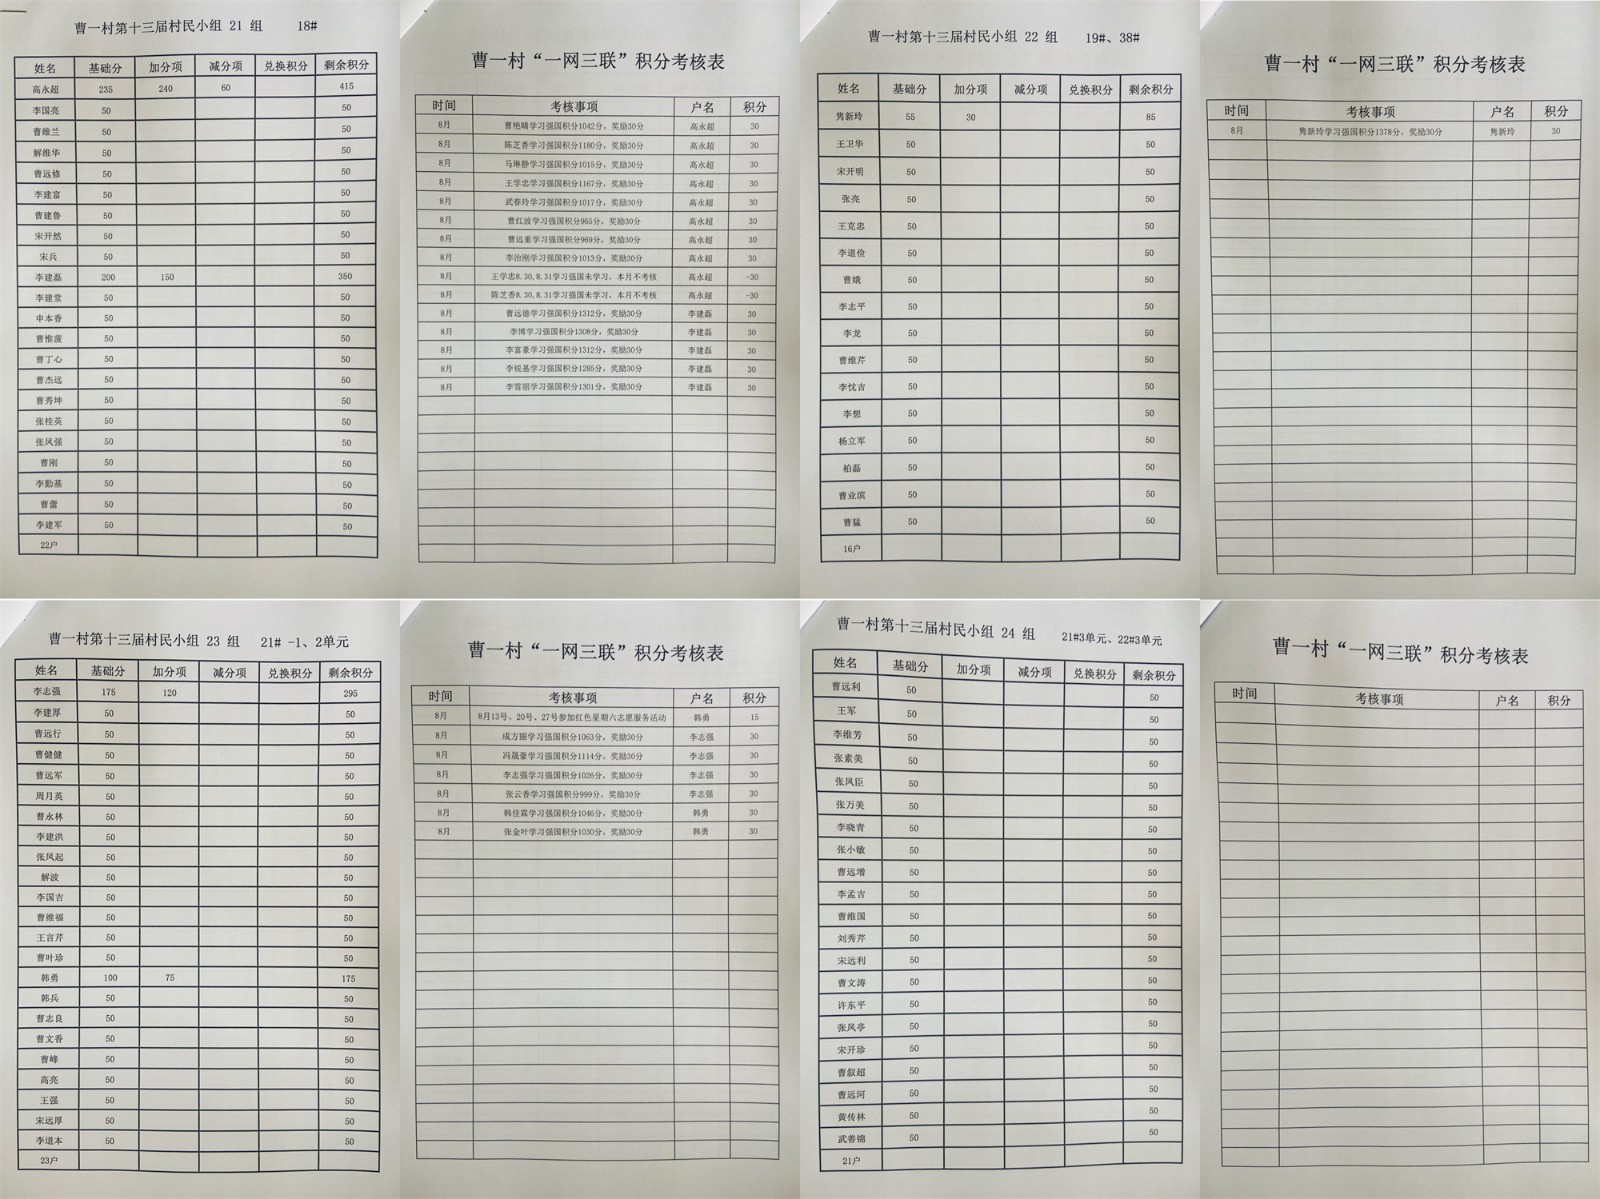 曹一村第十三届村民小组 21 组 18#
姓名 基础分 加分项 减分项 兑换积分 剩余积分
高永超 235 240 60 415
李国亮 50 50
曹维兰 50 50
解维华 50 50
曹远修 50 50
李建富 50 50
曹建鲁 50 50
宋开然 50 50
宋兵 50 50
李建磊 200 150 350
李建堂 50 50
申本香 50 50
曹惟菠 50 50
曹丁心 50 50
曹杰远 50 50
曹秀坤 50 50
张桂英 50 50
张凤强 50 50
曹刚 50 50
李勤基 50 50
曹蕾 50 50
李建军 50 50
22户
曹一村“一网三联”积分考核表
时间 考核事项 户名 积分
8月 曹艳晴学习强国积分1042分，奖励30分 高永超 30
8月 陈芝香学习强国积分1180分，奖励30分 高永超 30
8月 马琳静学习强国积分1015分，奖励30分 高永超 30
8月 王学忠学习强国积分1167分，奖励30分 高永超 30
8月 武春玲学习强国积分1017分，奖励30分 高永超 30
8月 曹红波学习强国积分965分，奖励30分 高永超 30
8月 曹远重学习强国积分969分，奖励30分 高永超 30
8月 李治刚学习强国积分1013分，奖励30分 高永超 30
8月 王学忠8.30,8.31学习强国未学习，本月不考核 高永超 -30
8月 陈芝香8.30,8.31学习强国未学习，本月不考核 高永超 -30
8月 曹远德学习强国积分1312分，奖励30分 李建磊 30
8月 李博学习强国积分1308分，奖励30分 李建磊 30
8月 李富豪学习强国积分1312分，奖励30分 李建磊 30
8月 李锐基学习强国积分1285分，奖励30分 李建磊 30
8月 李雪丽学习强国积分1301分，奖励30分 李建磊 30
曹一村第十三届村民小组 22 组 19#、38#
姓名 基础分 加分项 减分项 兑换积分 剩余积分
隽新玲 55 30 85
王卫华 50 50
宋开明 50 50
张亮 50 50
王克忠 50 50
李道俭 50 50
曹娥 50 50
李志平 50 50
李龙 50 50
曹维芹 50 50
李忱吉 50 50
李想 50 50
杨立军 50 50
柏磊 50 50
曹业滨 50 50
曹猛 50 50
16户
曹一村“一网三联”积分考核表
时间 考核事项 户名 积分
8月 隽新玲学习强国积分1378分，奖励30分 隽新玲 30
曹一村第十三届村民小组 23 组 21# -1、2单元
姓名 基础分 加分项 减分项 兑换积分 剩余积分
李志强 175 120 295
李建厚 50 50
曹远行 50 50
曹健健 50 50
曹远军 50 50
周月英 50 50
曹永林 50 50
李建洪 50 50
张凤起 50 50
解波 50 50
李国吉 50 50
曹维福 50 50
王言芹 50 50
曹叶珍 50 50
韩勇 100 75 175
韩兵 50 50
曹志良 50 50
曹文香 50 50
曹峰 50 50
高亮 50 50
王强 50 50
宋远厚 50 50
李道本 50 50
23户
曹一村“一网三联”积分考核表
时间 考核事项 户名 积分
8月 8月13号、20号、27号参加红色星期六志愿服务活动 韩勇 15
8月 成方丽学习强国积分1063分，奖励30分 李志强 30
8月 冯晟豪学习强国积分1114分，奖励30分 李志强 30
8月 李志强学习强国积分1026分，奖励30分 李志强 30
8月 张云香学习强国积分999分，奖励30分 李志强 30
8月 韩佳霖学习强国积分1046分，奖励30分 韩勇 30
8月 张金叶学习强国积分1030分，奖励30分 韩勇 30
曹一村第十三届村民小组 24 组 21#3单元、22#3单元
姓名 基础分 加分项 减分项 兑换积分 剩余积分
曹远利 50 50
王军 50 50
李维芳 50 50
张素美 50 50
张凤臣 50 50
张万美 50 50
李晓青 50 50
张小敏 50 50
曹远增 50 50
李孟吉 50 50
曹维国 50 50
刘秀芹 50 50
宋远利 50 50
曹文涛 50 50
许东平 50 50
张凤亭 50 50
宋开珍 50 50
曹叙超 50 50
曹远河 50 50
黄传林 50 50
武善锦 50 50
21户
曹一村“一网三联”积分考核表
时间 考核事项 户名 积分